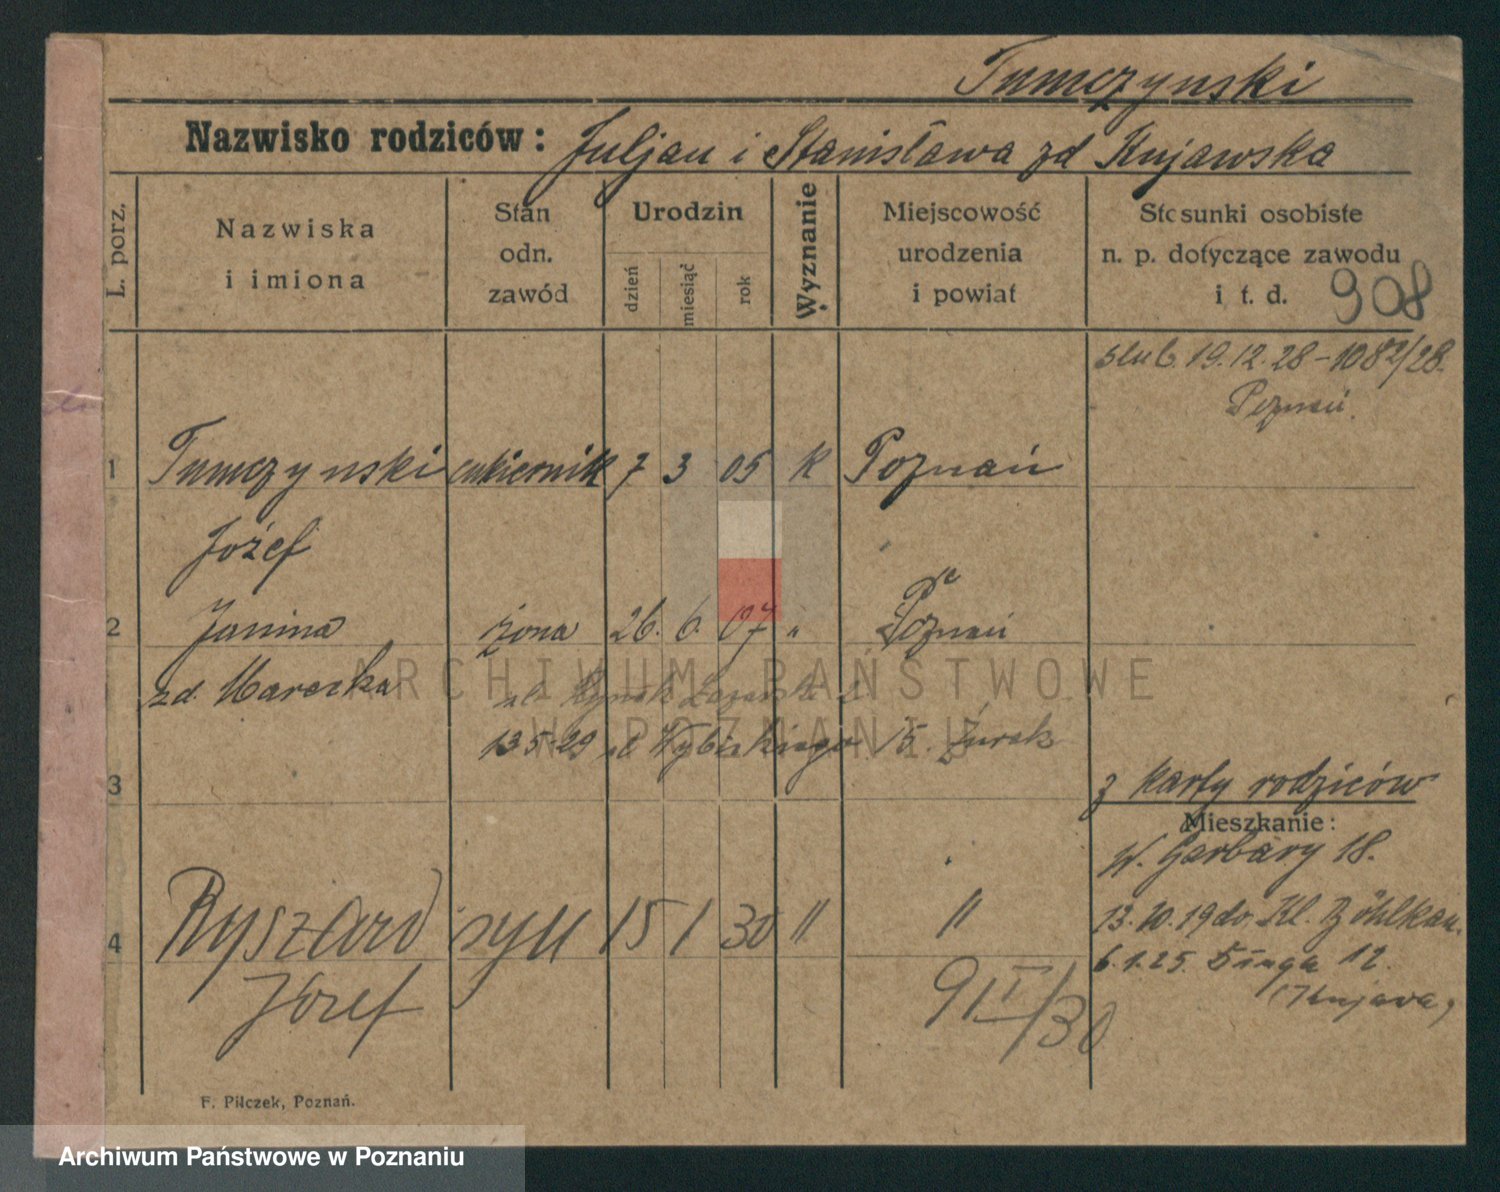 Tumczynski
Nazwisko rodziców: Juljan i Stanisława zd Kujawska
L. porz.
Nazwiska
i imiona
Stan
odn.
zawód
Urodzin
dzień
miesiąc
rok
Wyznanie
Miejscowość
urodzenia
i powiat
Stosunki osobiste
n. p. dotyczące zawodu
i t. d.
908
ślub. 19.12.28 - 1082/28.
Poznań.
1 Tumczynski cukiernik 7 3 05 k Poznań
Józef
2 Janina żona 26. 6. 07 " Poznań
zd. Marecka
ul. Rynek Łazarski 2
13 5 29 ul Wybickiego 15. Żurek
3
z karty rodziców
Mieszkanie:
W. Garbary 18.
4 Ryszard syn 15 1 30 " "
Józef
13.10.19 do. Kl.
6.1.25. 12.
(Kujawa)
91 I/30
F. Pilczek, Poznań.
ARCHIWUM PAŃSTWOWE
W POZNANIU
Archiwum Państwowe w Poznaniu